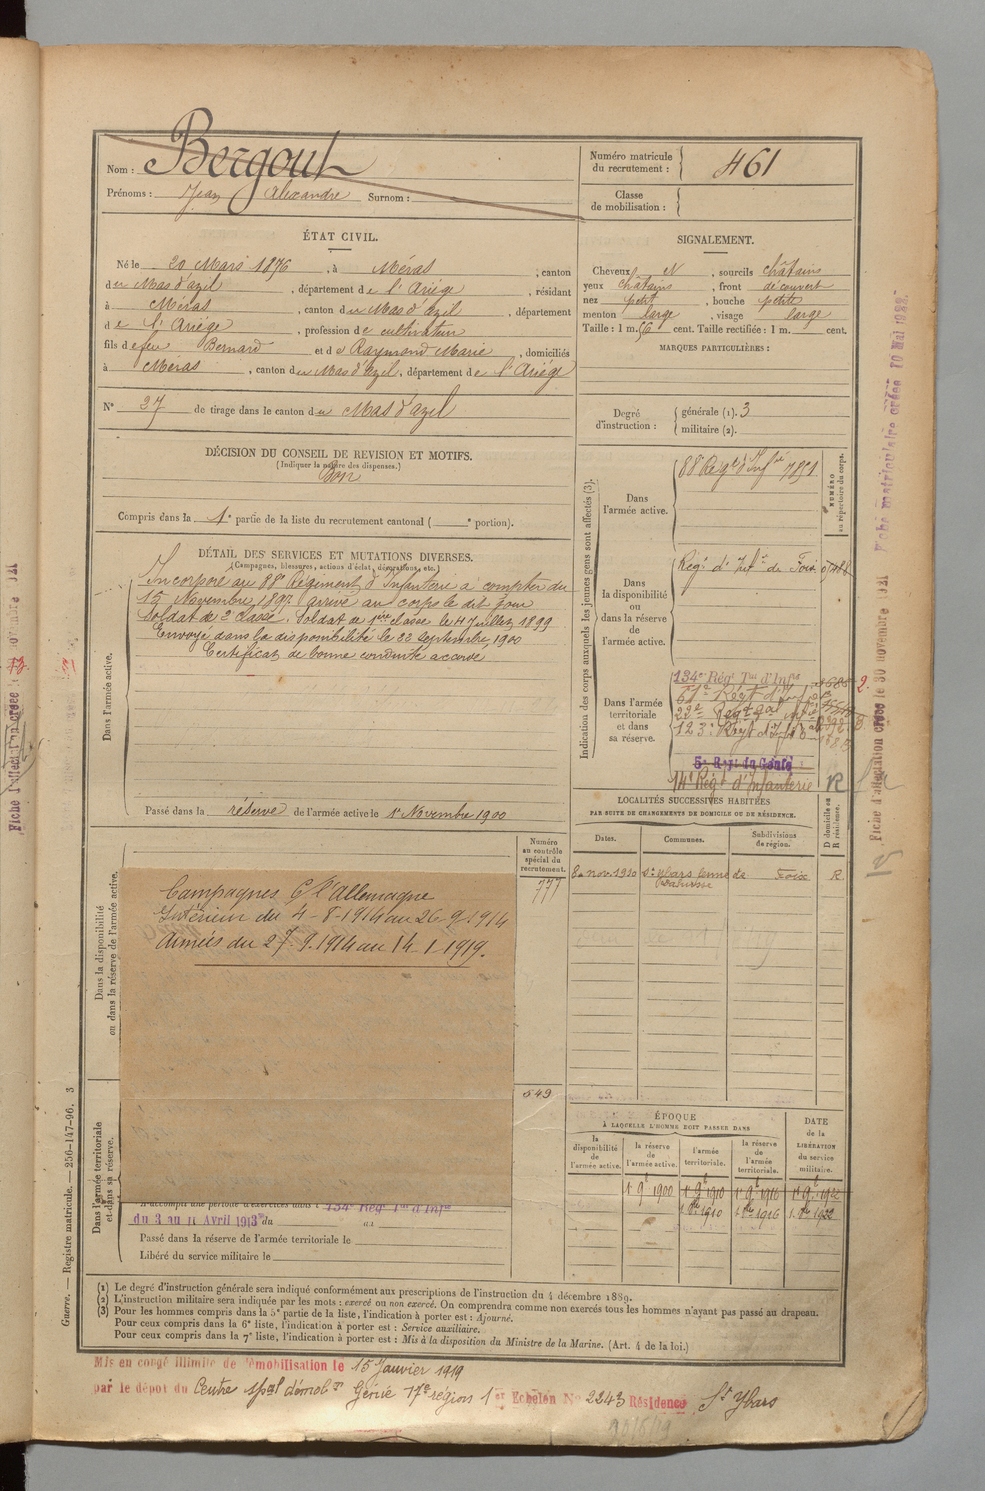 Nom : Bergout
Prénoms : Jean Alexandre Surnom :
Numéro matricule du recrutement : 461
Classe de mobilisation :
ÉTAT CIVIL.
Né le 20 Mars 1876, à Méras, canton
du Mas d'azil, département de l'Ariège, résidant
à Méras, canton du Mas d'azil, département
de l'Ariége, profession de cultivateur
fils de feu Bernard et de Raymond Marie, domiciliés
à Méras, canton du Mas d'azil, département de l'Ariége
N° 27 de tirage dans le canton du Mas d'azil
SIGNALEMENT.
Cheveux N, sourcils châtains
yeux châtains, front découvert
nez petit, bouche petite
menton large, visage large
Taille : 1 m. 56 cent. Taille rectifiée : 1 m. cent.
MARQUES PARTICULIÈRES :
Degré d'instruction : générale (1). 3
militaire (2).
DÉCISION DU CONSEIL DE REVISION ET MOTIFS.
(Indiquer la nature des dispenses.)
Bon
Compris dans la 1e partie de la liste du recrutement cantonal ( e portion).
DÉTAIL DES SERVICES ET MUTATIONS DIVERSES.
(Campagnes, blessures, actions d'éclat, décorations, etc.)
Dans l'armée active.
Incorporé au 88e Régiment d'Infanterie à compter du
15 Novembre 1897 arrivé au corps le dit jour
Soldat de 2e classe. Soldat de 1ère classe le 14 Juillet 1899
Envoyé dans la disponibilité le 22 septembre 1900
Certificat de bonne conduite accordé
Passé dans la réserve de l'armée active le 1er Novembre 1900
Indication des corps auxquels les jeunes gens sont affectés (3).
NUMÉRO au répertoire du corps.
Dans l'armée active.
88 Régt d'Infrie 7851
Dans la disponibilité ou dans la réserve de l'armée active.
Régt d'Infie de Foix
Dans l'armée territoriale et dans sa réserve.
134e Régt Tal d'Infie
123e Régt d'Infie
5e Régt du Génie
14e Régt d'Infanterie R
LOCALITÉS SUCCESSIVES HABITÉES
PAR SUITE DE CHANGEMENTS DE DOMICILE OU DE RÉSIDENCE.
Dates. Communes. Subdivisions de région. D domicile ou R résidence.
8 nov. 1910 St Ybars Foix R.
Numéro au contrôle spécial du recrutement.
777
549
Dans la disponibilité ou dans la réserve de l'armée active.
Campagnes C/ l'Allemagne
Intérieur du 4-8-1914 au 26-9-1914
Armées du 27.9.1914 au 14-1-1919.
Dans l'armée territoriale et dans sa réserve.
A accompli une période d'exercices dans l 134e Régt Tal d'Infie
du 3 au 11 Avril 1913 du au
Passé dans la réserve de l'armée territoriale le
Libéré du service militaire le
ÉPOQUE
À LAQUELLE L'HOMME DOIT PASSER DANS
la disponibilité de l'armée active. la réserve de l'armée active. l'armée territoriale. la réserve de l'armée territoriale. DATE de la LIBÉRATION du service militaire.
1er 9e 1900 1er 9e 1910 1er 9e 1916 1er 9e 1922
1910 1916 1922
(1) Le degré d'instruction générale sera indiqué conformément aux prescriptions de l'instruction du 4 décembre 1889.
(2) L'instruction militaire sera indiquée par les mots : exercé ou non exercé. On comprendra comme non exercés tous les hommes n'ayant pas passé au drapeau.
(3) Pour les hommes compris dans la 5e partie de la liste, l'indication à porter est : Ajourné.
Pour ceux compris dans la 6e liste, l'indication à porter est : Service auxiliaire.
Pour ceux compris dans la 7e liste, l'indication à porter est : Mis à la disposition du Ministre de la Marine. (Art. 4 de la loi.)
Guerre. — Registre matricule. — 256-147-96. 3
Mis en congé illimité de démobilisation le 15 Janvier 1919
par le dépôt du Centre spal démobon Génie 17e région 1er Echelon N° 2243 Résidence St Ybars
Fiche matriculaire créée 10 Mai 1928
Fiche d'affectation créée le 30 novembre 1921